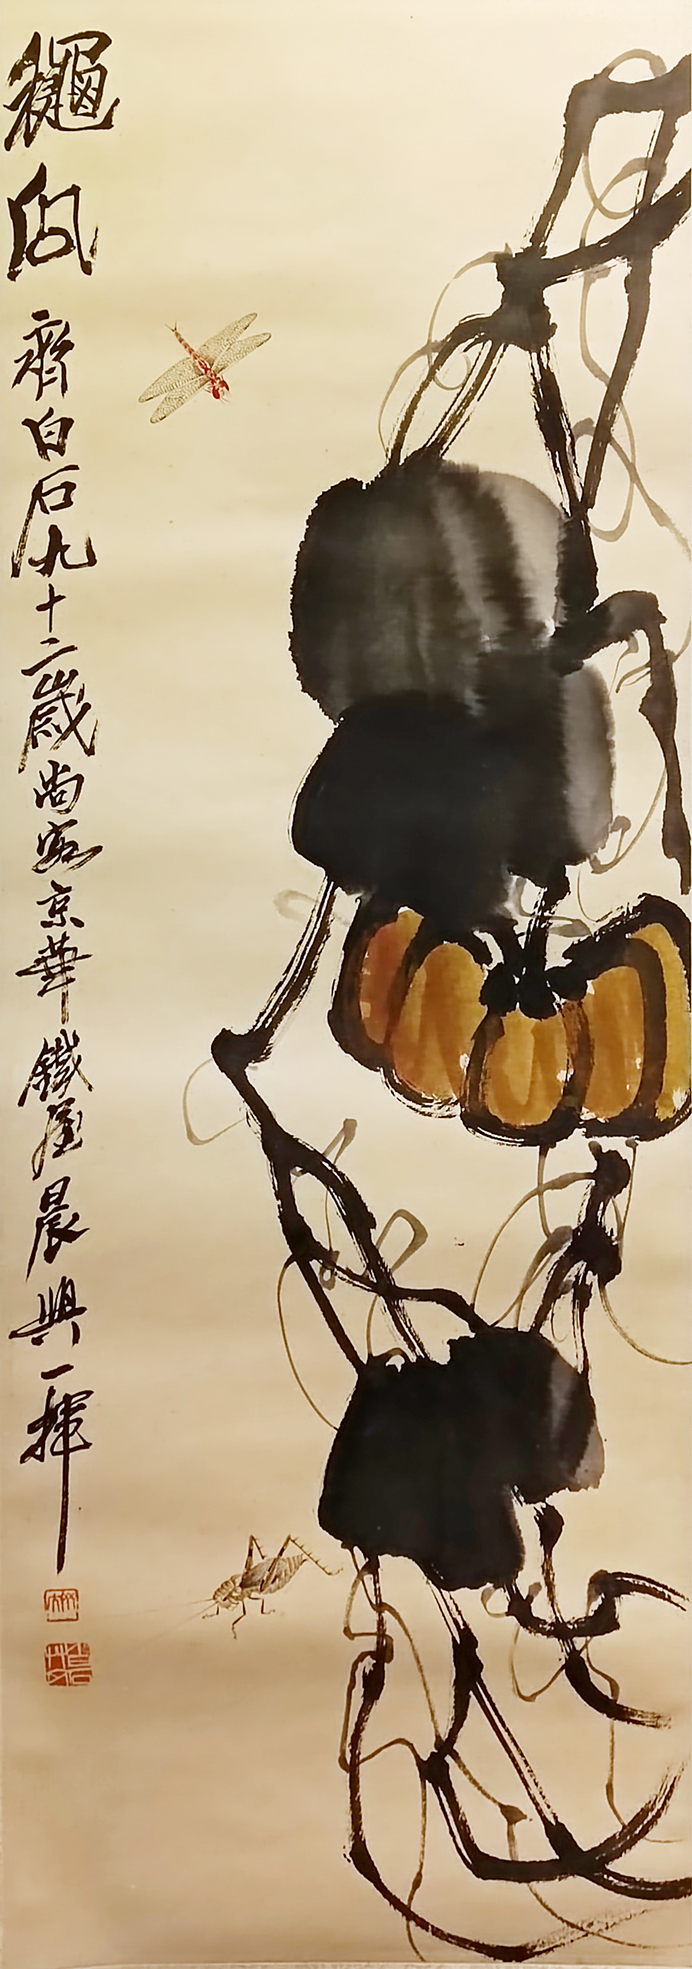 龝瓜 齊白石九十二歲尚客京華鐵屋晨興一揮